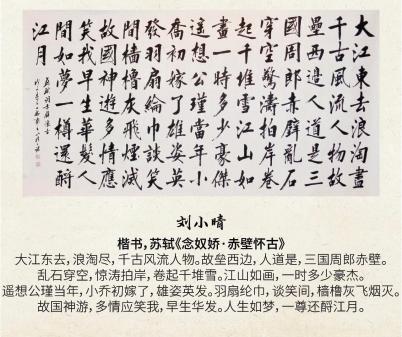 大江東去浪淘盡
千古風流人物故
壘西邊人道是三
國周郎赤壁亂石
穿空驚濤拍岸卷
起千堆雪江山如
畫一時多少豪傑
遙想公瑾當年小
喬初嫁了雄姿英
發羽扇綸巾談笑
間檣櫓灰飛煙滅
故國神遊多情應
笑我早生華髮人
間如夢一樽還酹
江月
刘小晴
楷书，苏轼《念奴娇·赤壁怀古》
大江东去，浪淘尽，千古风流人物。故垒西边，人道是，三国周郎赤壁。
乱石穿空，惊涛拍岸，卷起千堆雪。江山如画，一时多少豪杰。
遥想公瑾当年，小乔初嫁了，雄姿英发。羽扇纶巾，谈笑间，樯橹灰飞烟灭。
故国神游，多情应笑我，早生华发。人生如梦，一尊还酹江月。